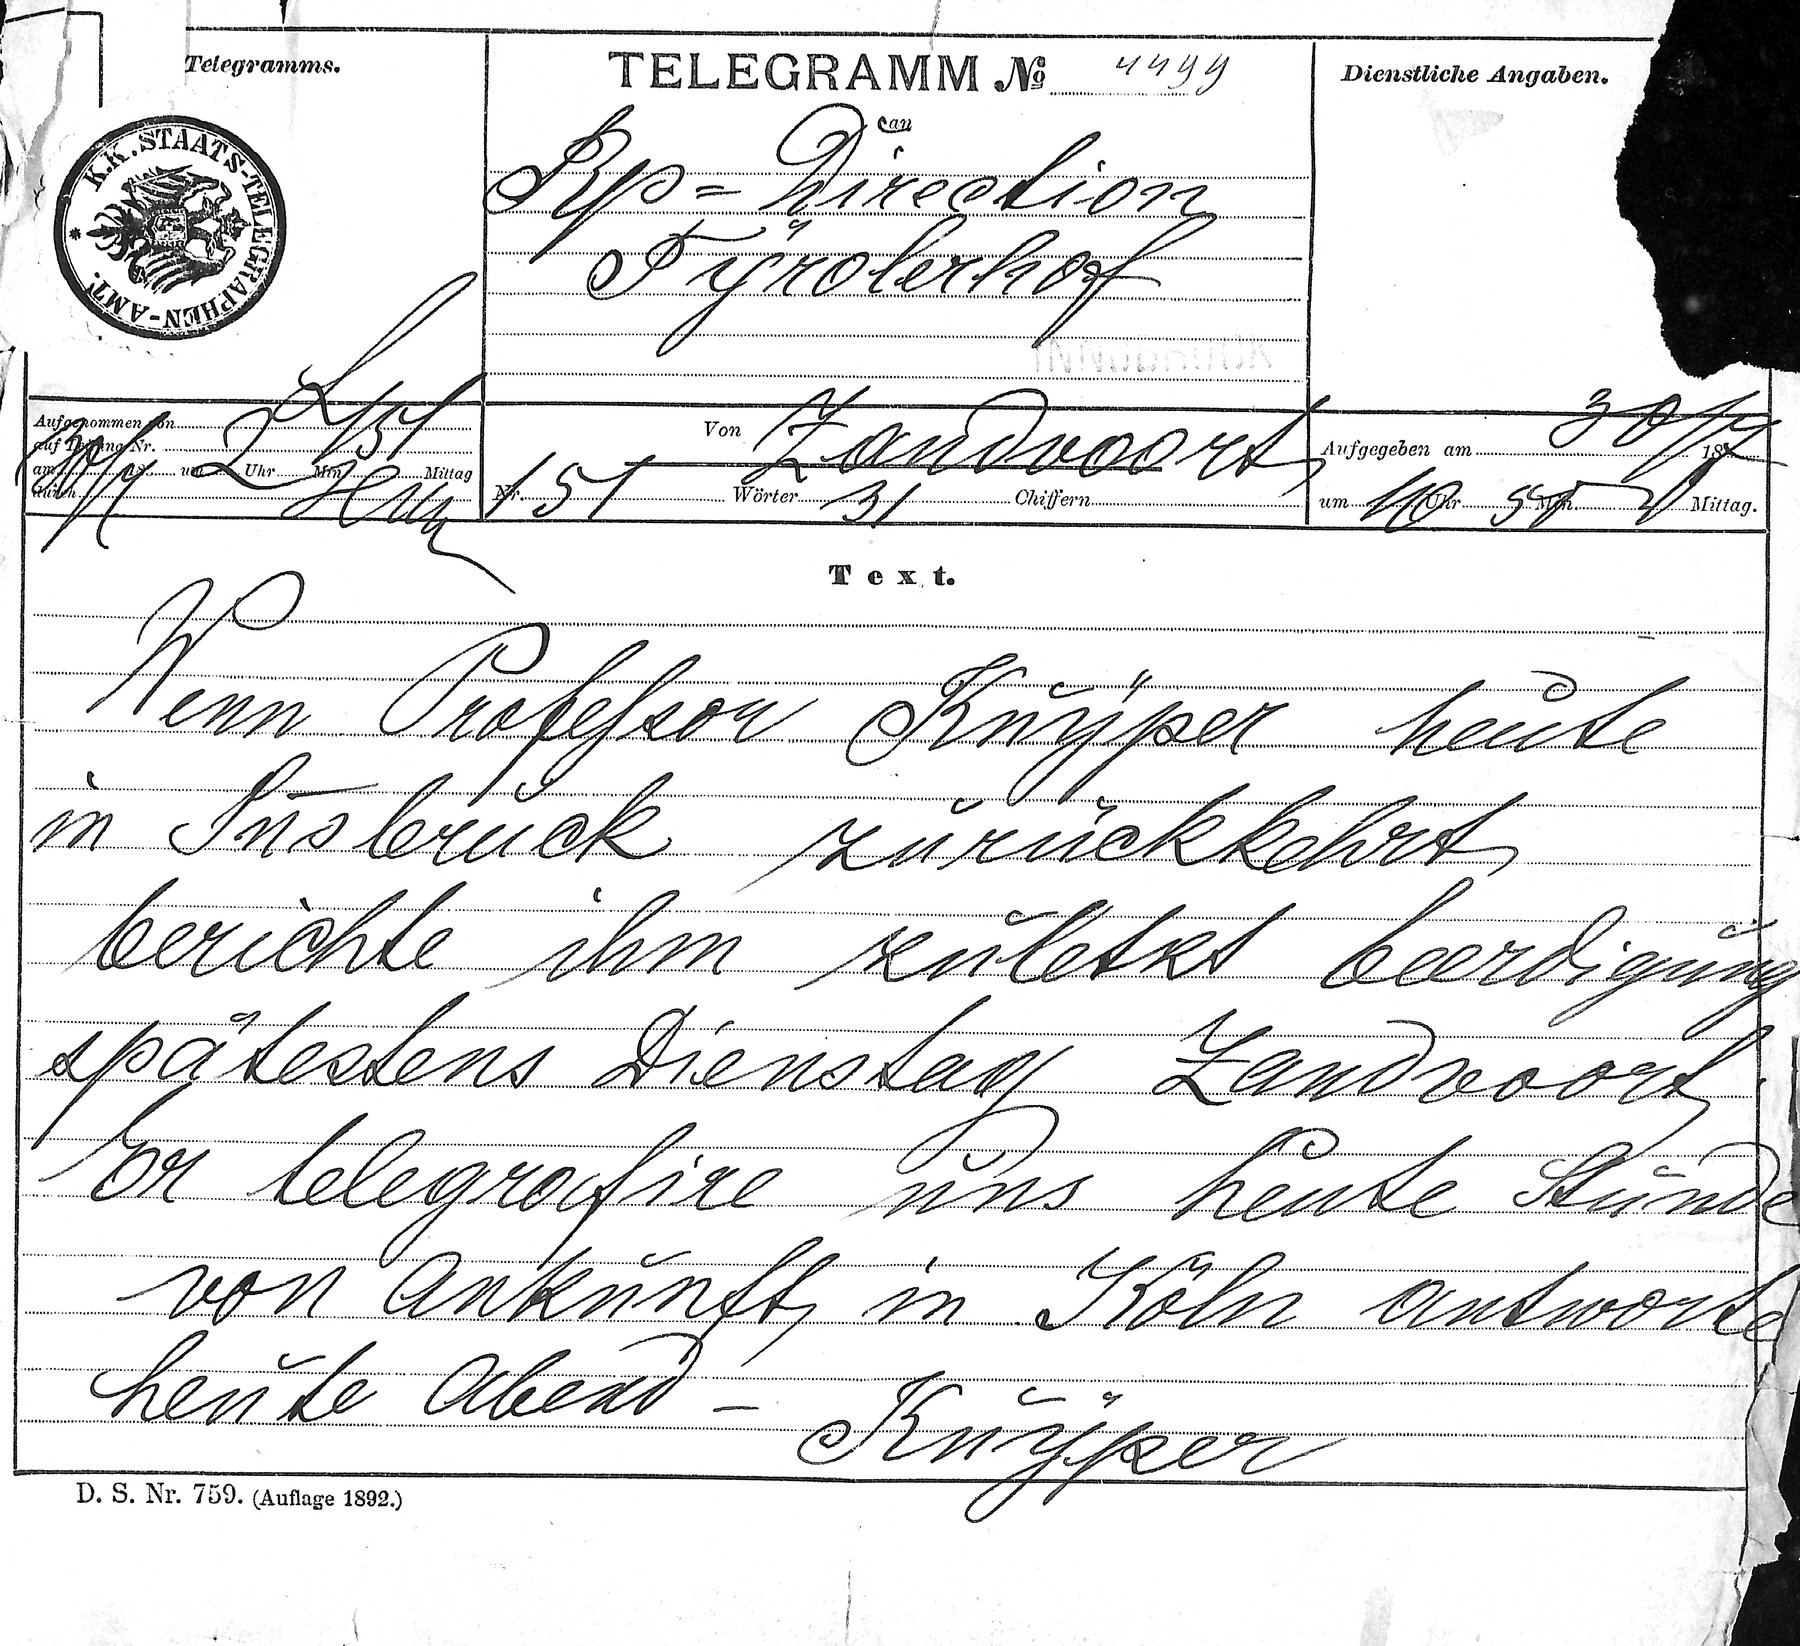 Telegramms.
TELEGRAMM № 4499
Dienstliche Angaben.
K.K. STAATS-TELEGRAPHEN-AMT.
an
Rp = Direction
Tyrolerhof
Aufgenommen von
auf Leitung Nr. 451
am 30/7 18 um 2 Uhr Min Mittag
durch
Von Zandvoort
Nr. 151 Wörter 31 Chiffern
Aufgegeben am 30/7 18
um 10 Uhr 55 Min. V Mittag.
Text.
Wenn Professor Kuyper heute
in Insbruck zurückkehrt
berichte ihm zuletzt beerdigung
spätestens Dienstag Zandvoort
Er telegrafire uns heute Stunde
von Ankunft in Köln antworte
heute Abend – Kuyper
D. S. Nr. 759. (Auflage 1892.)